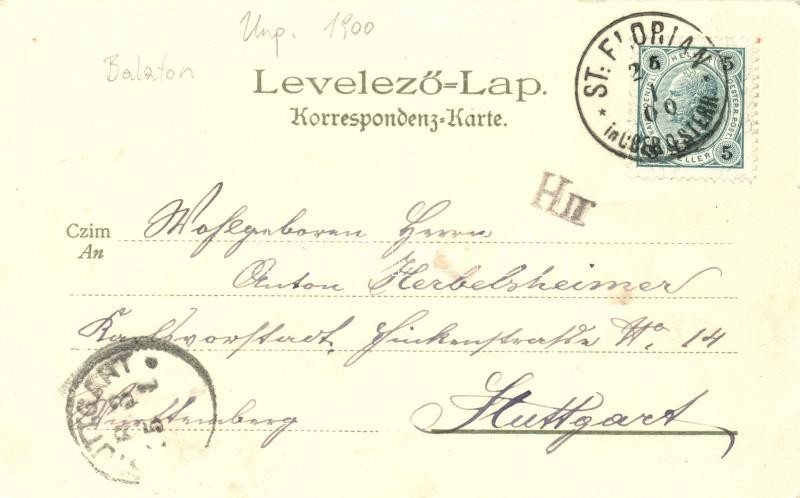 Ung. 1900
Balaton
Levelező=Lap.
Korrespondenz=Karte.
ST. FLORIAN
in OBER ÖSTERR.
5 5
5
HELLER
H III
Czim
An
Wohlgeboren Herrn
Anton Herbelsheimer
Karlsvorstadt, Finkenstraße No. 14
Württemberg Stuttgart
STUTTGART